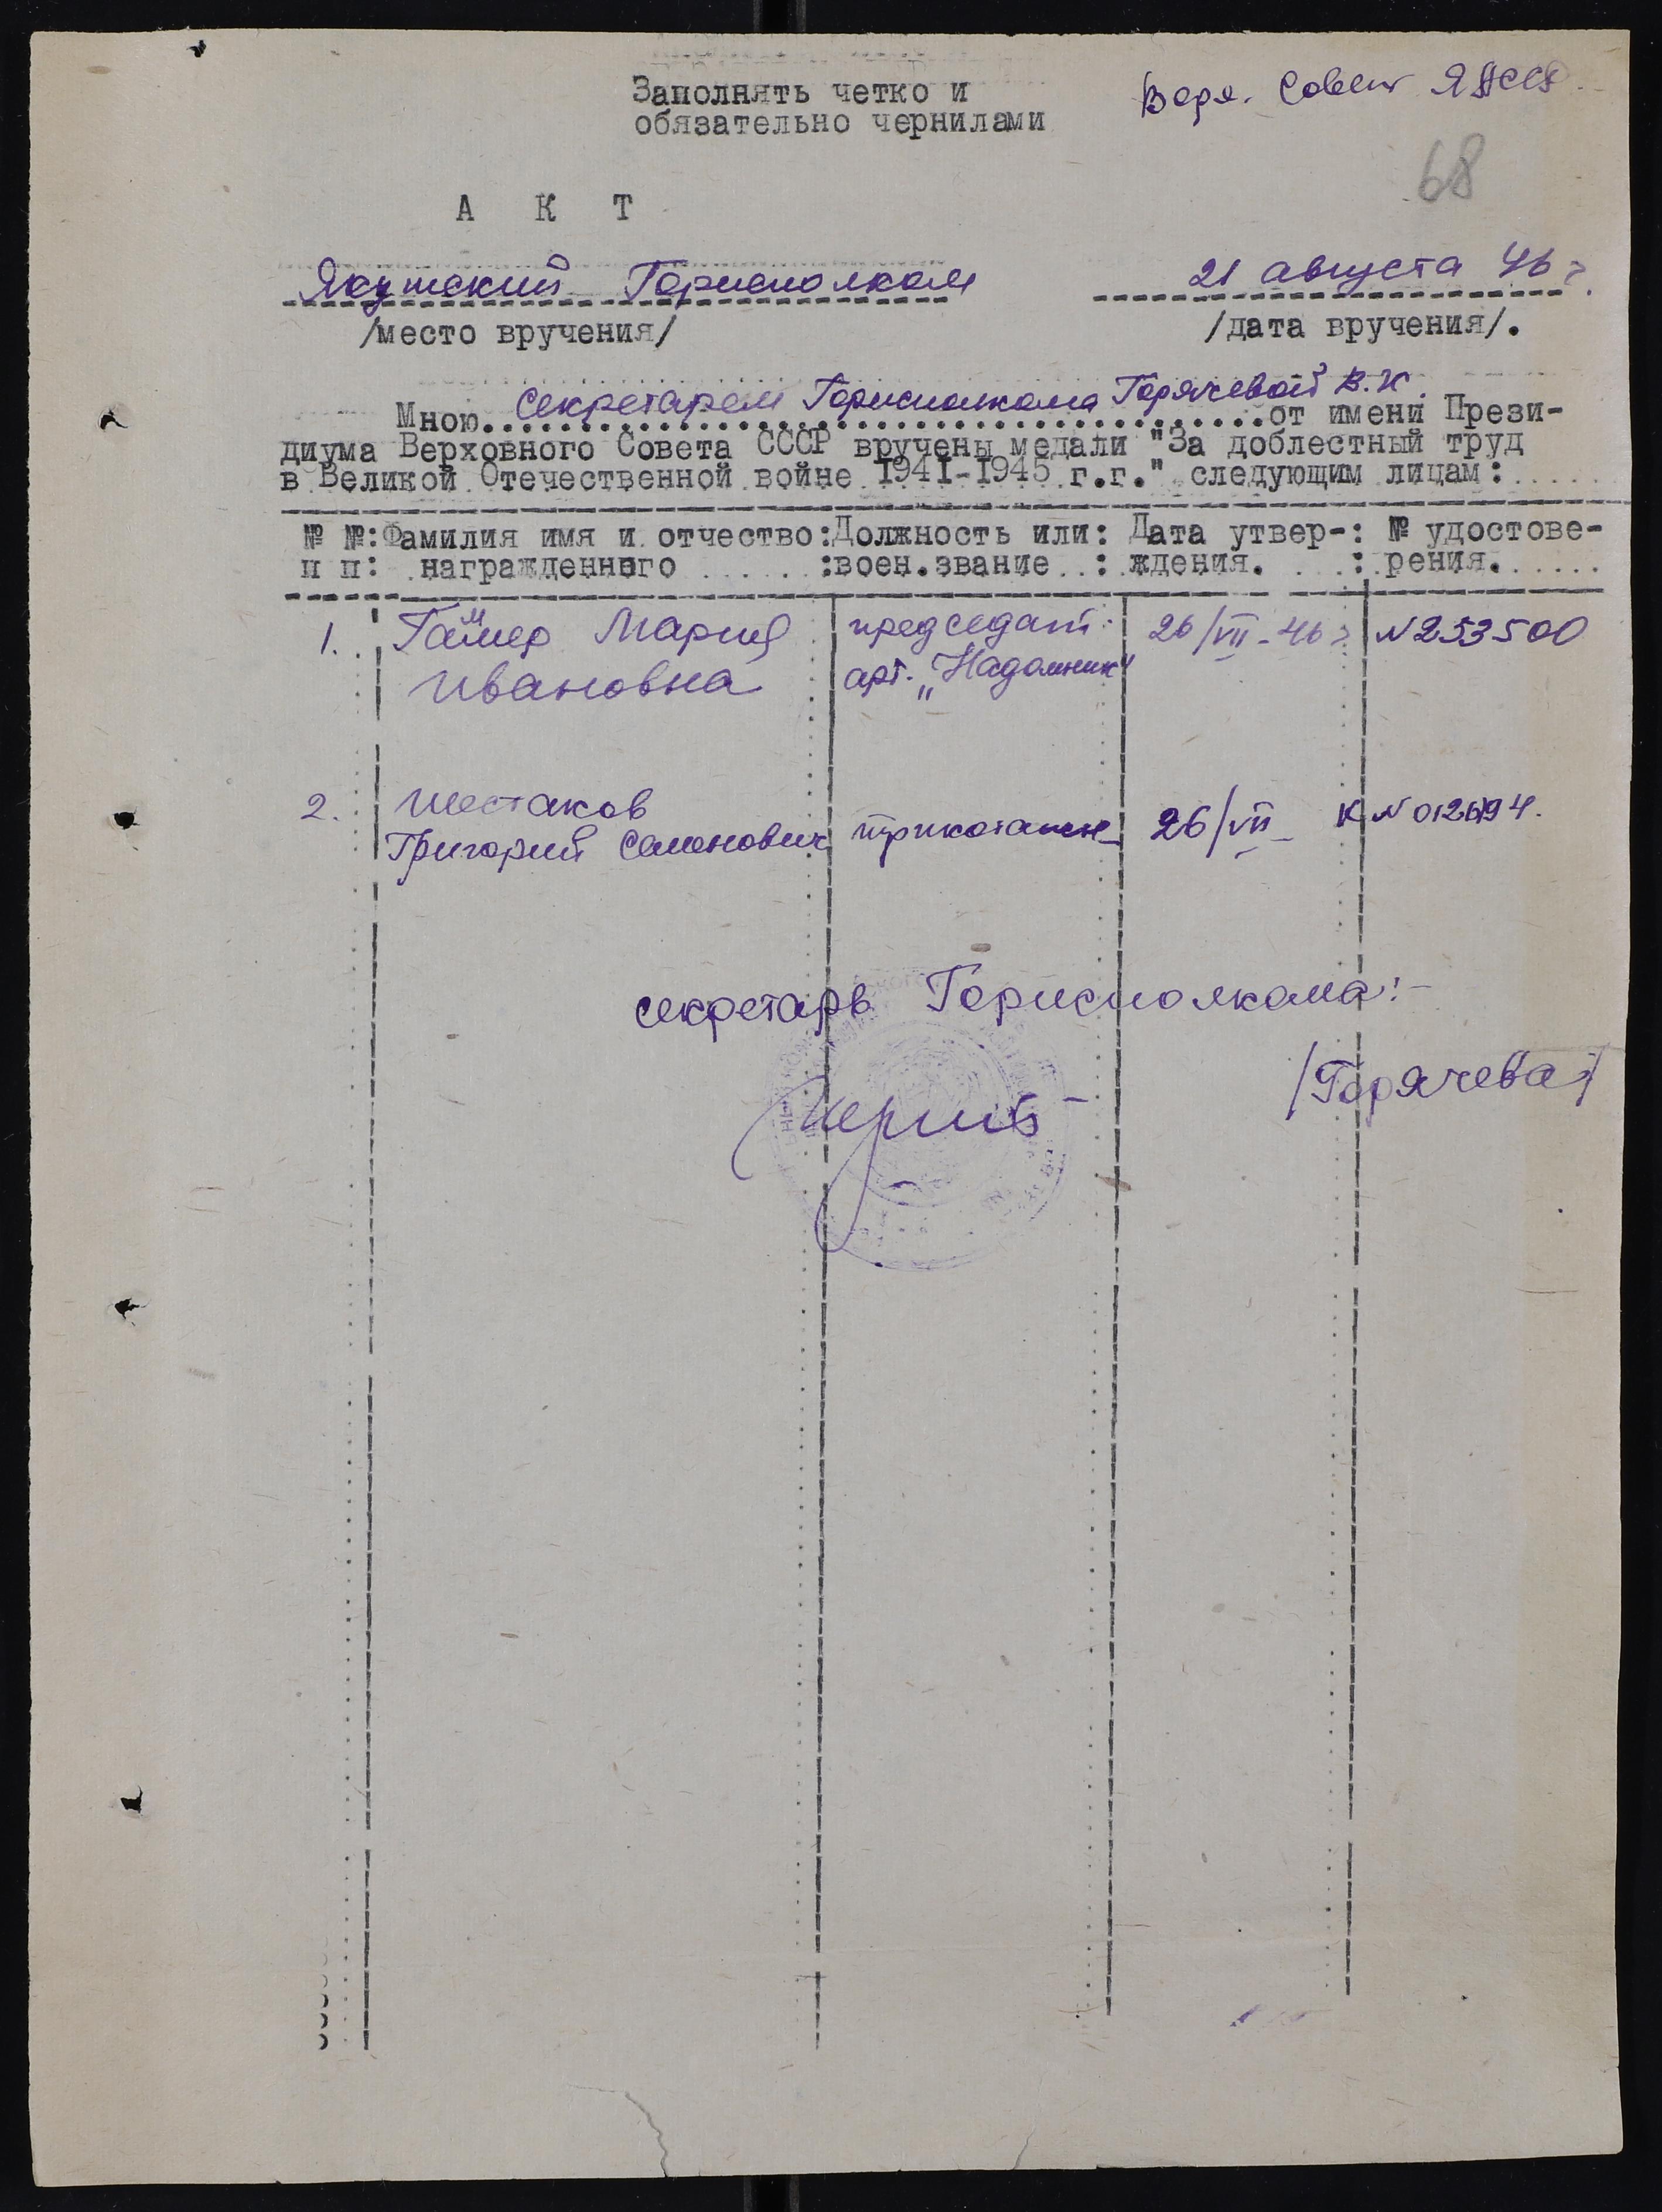 Заполнять четко и
обязательно чернилами
Верх. Совет ЯАССР
68
А К Т
Якутский Горисполком 21 августа 46 г.
/место вручения/ /дата вручения/.
Мною секретарем Горисполкома Горячевой В.И. от имени Прези-
диума Верховного Совета СССР вручены медали "За доблестный труд
в Великой Отечественной войне 1941-1945 г.г." следующим лицам:
№ №:Фамилия имя и отчество:Должность или: Дата утвер-: № удостове-
п п: награжденного :воен.звание : ждения. : рения.
1. Мария председат. 26/VII-46 г №253500
Ивановна арт. „Надомник"
2. Шестаков
Григорий Семенович 26/VII-
секретарь Горисполкома:-
/Горячева/